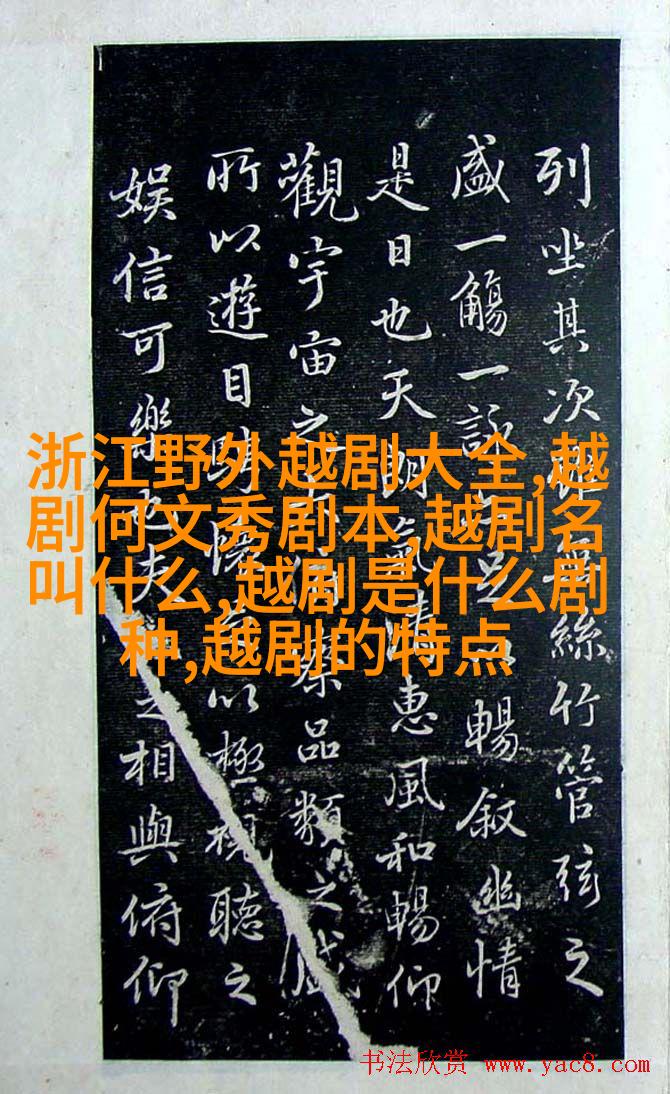 列坐其次雖無絲竹管弦之
盛一觴一詠亦足以暢叙幽情
是日也天朗氣清惠風和暢仰
觀宇宙之大俯察品類之盛
所以遊目騁懷足以極視聽之
娱信可樂也夫人之相與俯仰
浙江野外越剧大全,越
剧何文秀剧本,越剧名
叫什么,越剧是什么剧
种,越剧的特点
书法欣赏 www.yac8.com